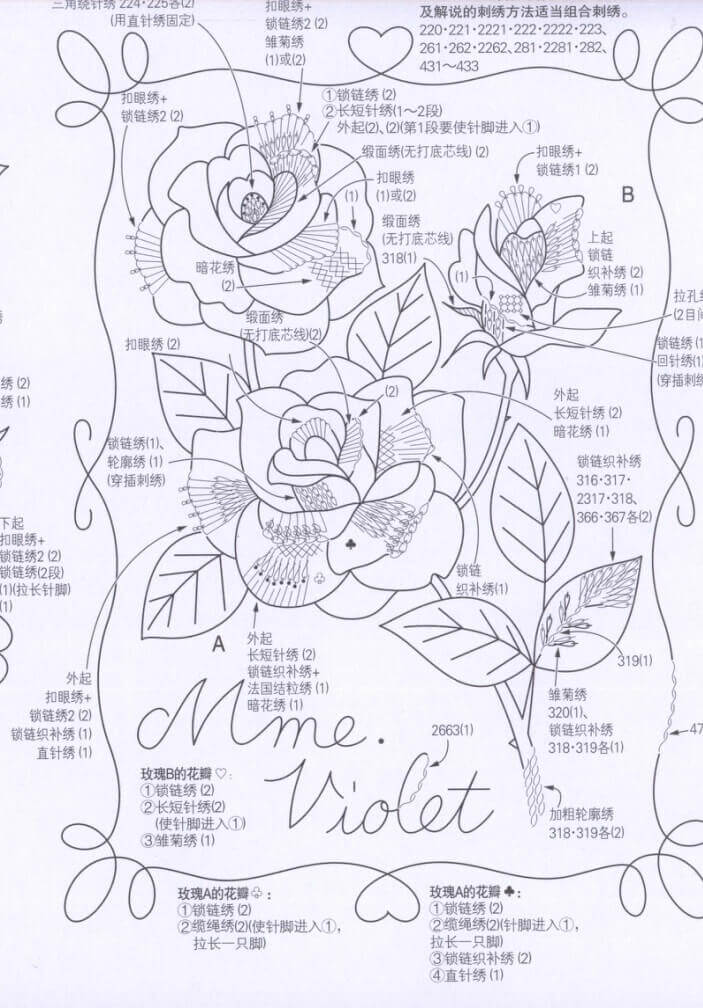 三角绕针绣 224·225各(2)
(用直针绣固定)
扣眼绣+
锁链绣2 (2)
雏菊绣
(1)或(2)
及解说的刺绣方法适当组合刺绣。
220·221·2221·222·2222·223、
261·262·2262、281·2281·282、
431～433
扣眼绣+
锁链绣2 (2)
①锁链绣 (2)
②长短针绣(1～2段)
外起(2)、(2)(第1段要使针脚进入①)
缎面绣(无打底芯线) (2)
扣眼绣
(1)或(2)
(1)
缎面绣
(无打底芯线)
318(1)
暗花绣
(2)
扣眼绣+
锁链绣1 (2)
B
上起
锁链
织补绣 (2)
雏菊绣 (1)
(1)
拉孔
(2目
锁链绣 (1
回针绣(1)
(穿插刺
缎面绣
(无打底芯线)(2)
扣眼绣 (2)
(2)
外起
长短针绣 (2)
暗花绣 (1)
锁链绣(1)、
轮廓绣 (1)
(穿插刺绣)
锁链织补绣
316·317·
2317·318、
366·367各(2)
绣 (2)
绣 (1)
下起
扣眼绣+
锁链绣2 (2)
锁链绣(2段)
(1)(拉长针脚)
(1)
锁链
织补绣(1)
A
外起
长短针绣 (2)
锁链织补绣+
法国结粒绣 (1)
暗花绣 (1)
外起
扣眼绣+
锁链绣2 (2)
锁链织补绣 (1)
直针绣 (1)
319(1)
雏菊绣
320(1)、
锁链织补绣
318·319各(1)
47
Mme.
Violet
2663(1)
加粗轮廓绣
318·319各(2)
玫瑰B的花瓣♡:
①锁链绣 (2)
②长短针绣(2)
(使针脚进入①)
③雏菊绣 (1)
玫瑰A的花瓣♧:
①锁链绣 (2)
②缆绳绣(2)(使针脚进入①,
拉长一只脚)
玫瑰A的花瓣♣:
①锁链绣 (2)
②缆绳绣(2)(针脚进入①,
拉长一只脚)
③锁链织补绣 (2)
④直针绣 (1)